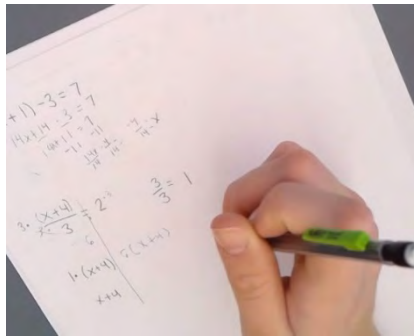 + 1) - 3 = 7
14x + 14 - 3 = 7
14x + 11 = 7
-11 -11
-4/14 = x
3 · (x+4)/3 = 2
3/3 = 1
6
1 · (x+4)
÷(x+4)
x+4